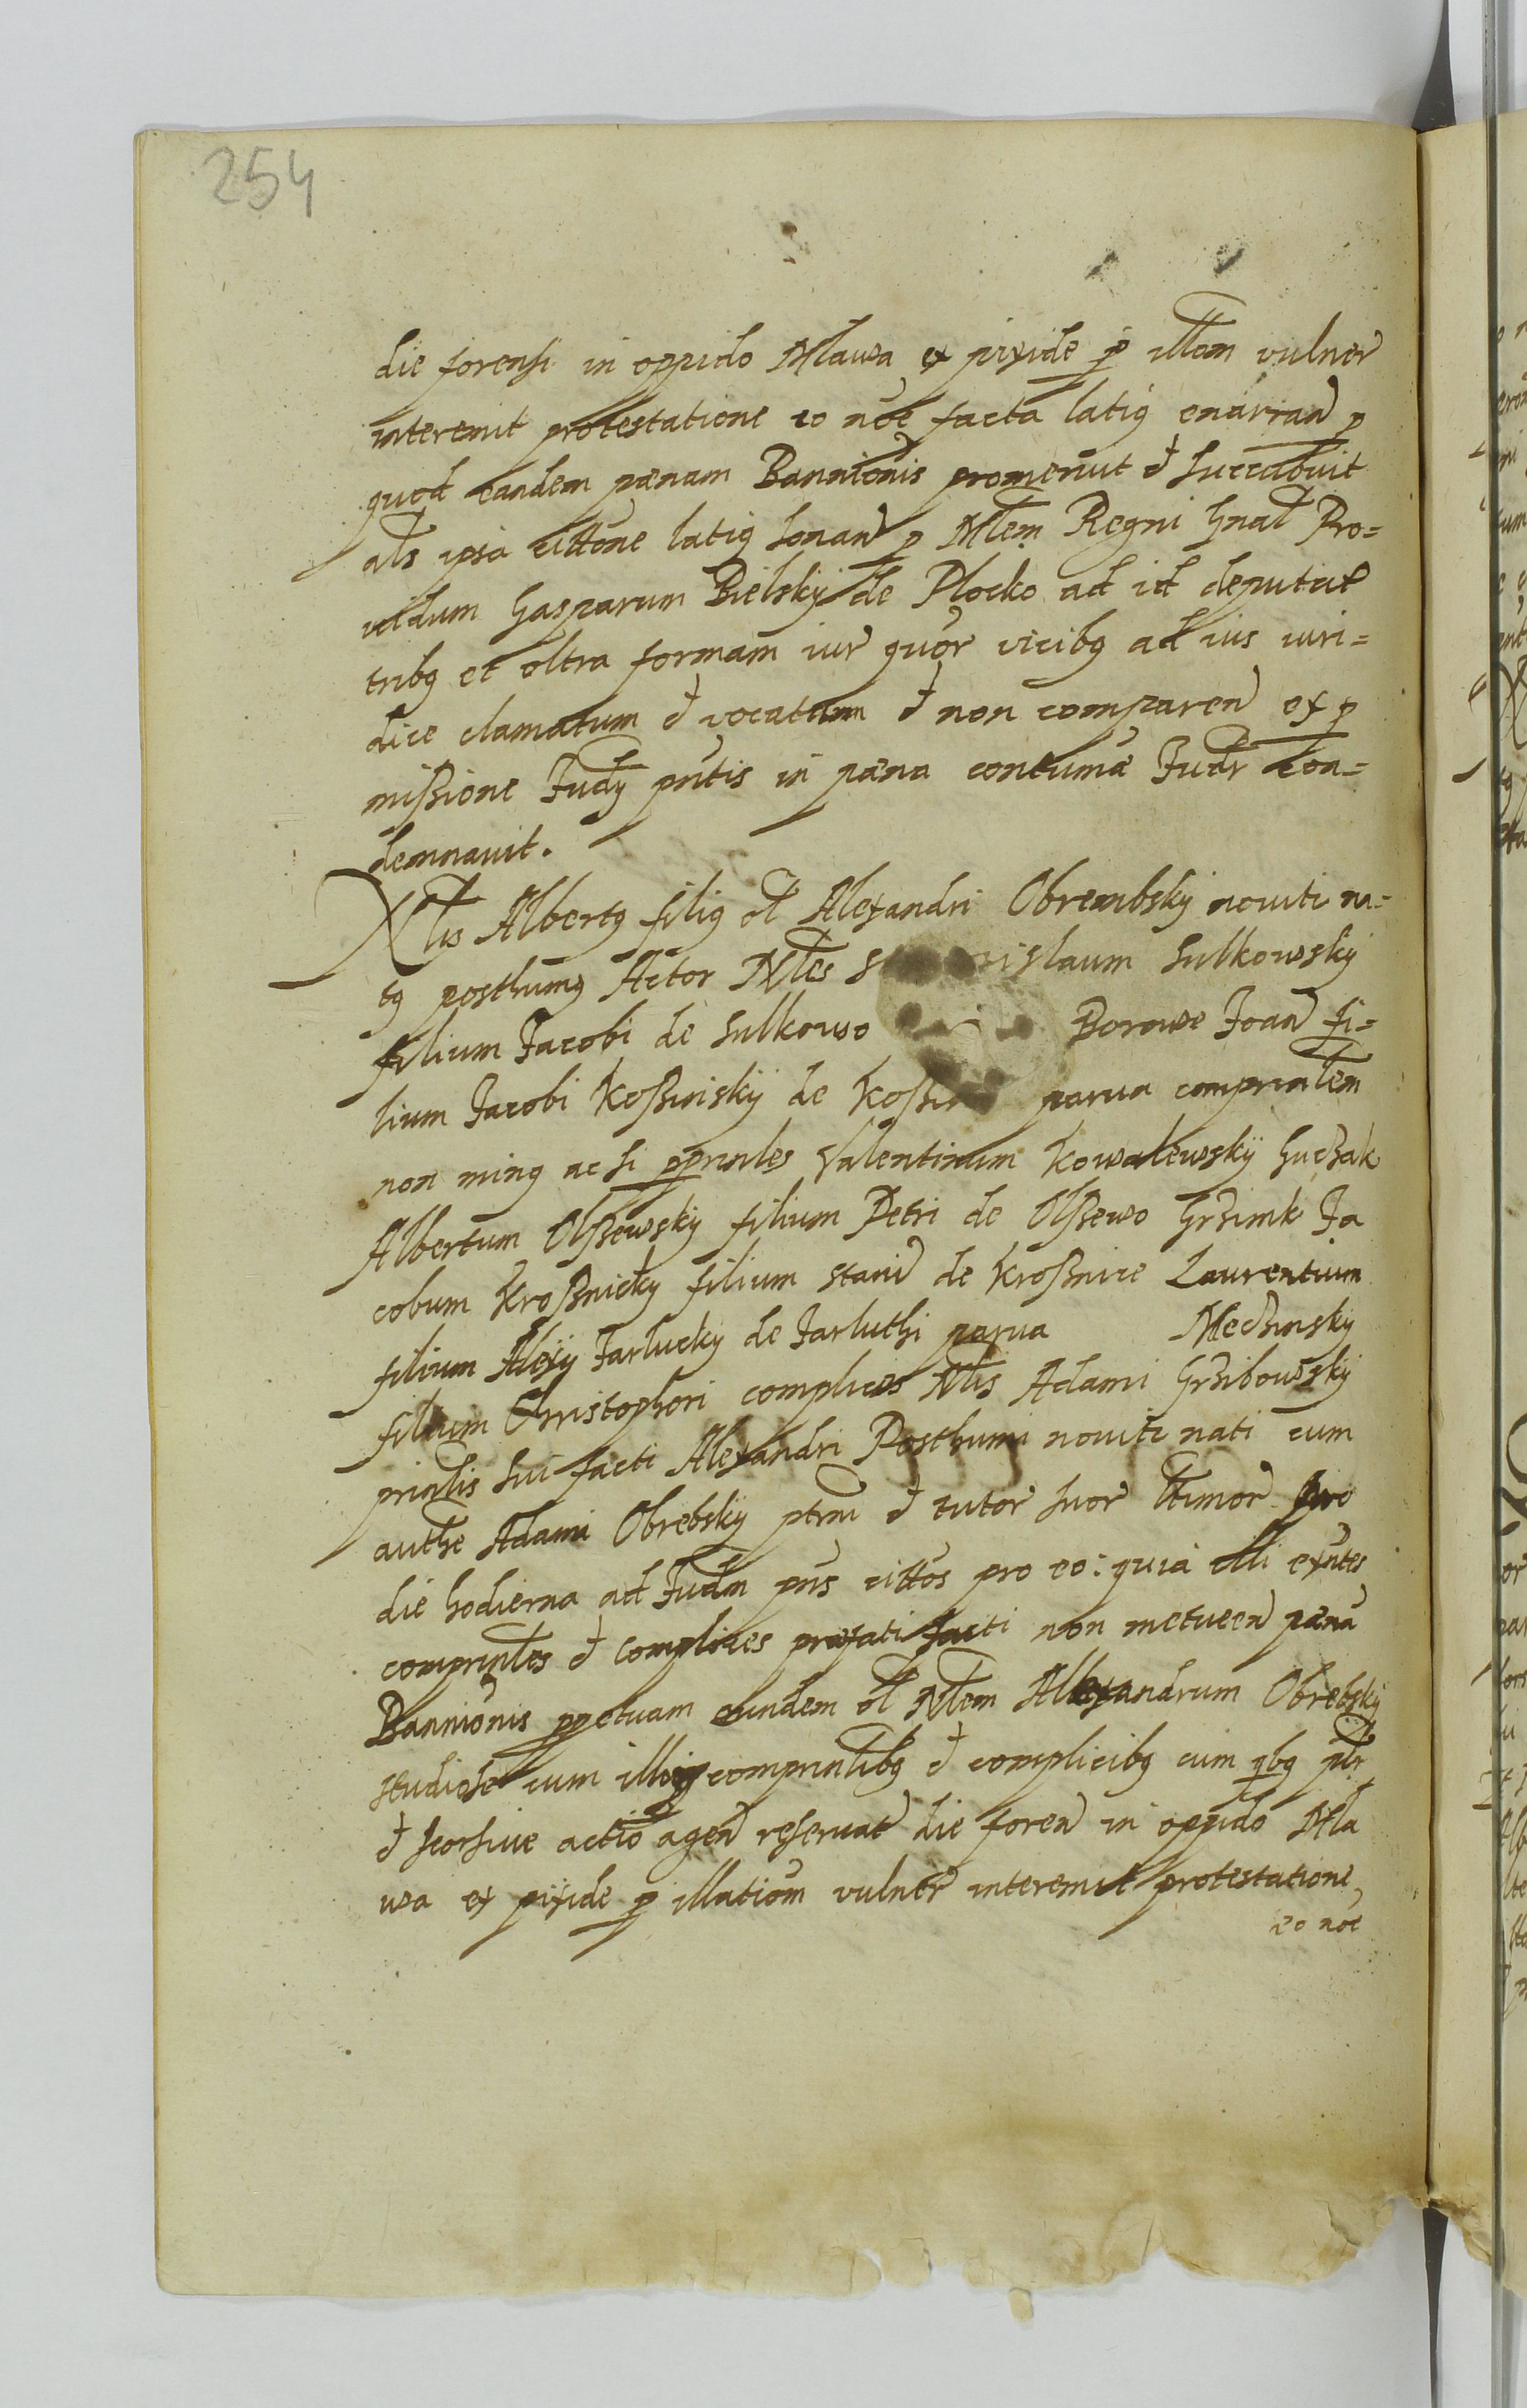 254
die forensi in oppido Mlawa ex pixide p illom vulner
interemit protestatione eo noe facta latiq enarran p
quod eandem pænam Bannionis promeruit et succubuit
als ipsa cittone latiq sonan p Mlem Regni Gnal Pro=
vidum Gasparum Bielsky de Plocko ad id deputat
tribq et ultra formam iur quor vicibq ad ius iuri=
dice clamatum et vocatum et non comparen ex p
missione Judy pntis in pæna contuma Judr con=
demnavit.
Nlis Albertq filiq ol Alexandri Obrembsky noviti na=
tq posthumq Actor Nles islaum Sulkowsky
filium Jacobi de Sulkowo Borowe Joan fi=
lium Jacobi Kossinsky de parva comprinlem
non minq ac si pprinles Valentinum Kowalewsky Guchak
Albertum Olssewsky filium Petri de Olssewo Grzimk Ja
cobum Krossnicky filium Stani de Krossnice Laurentium
filium Alexy Jarlucky de Jarluthi parva Mechinsky
filium Christophori complices Nlis Adami Grzibowsky
prinlis sui facti Alexandri Posthumi noviti nati cum
authe Adami Obrebsky ptrui et tutor suor ltimor pro
die hodierna ad Judm pns cittos pro eo: quia illi exntes
comprinles et complices præfati facti non metueen pæna
Bannionis ppetuam eundem ol Nlem Alexandrum Obrebsky
studiose cum illiq comprinlibq et complicibq cum qbq plr
et seorsive actio agen reservat die foren in oppido Mla
wa ex pixide p illatiom vulner interemit protestatione
eo noe